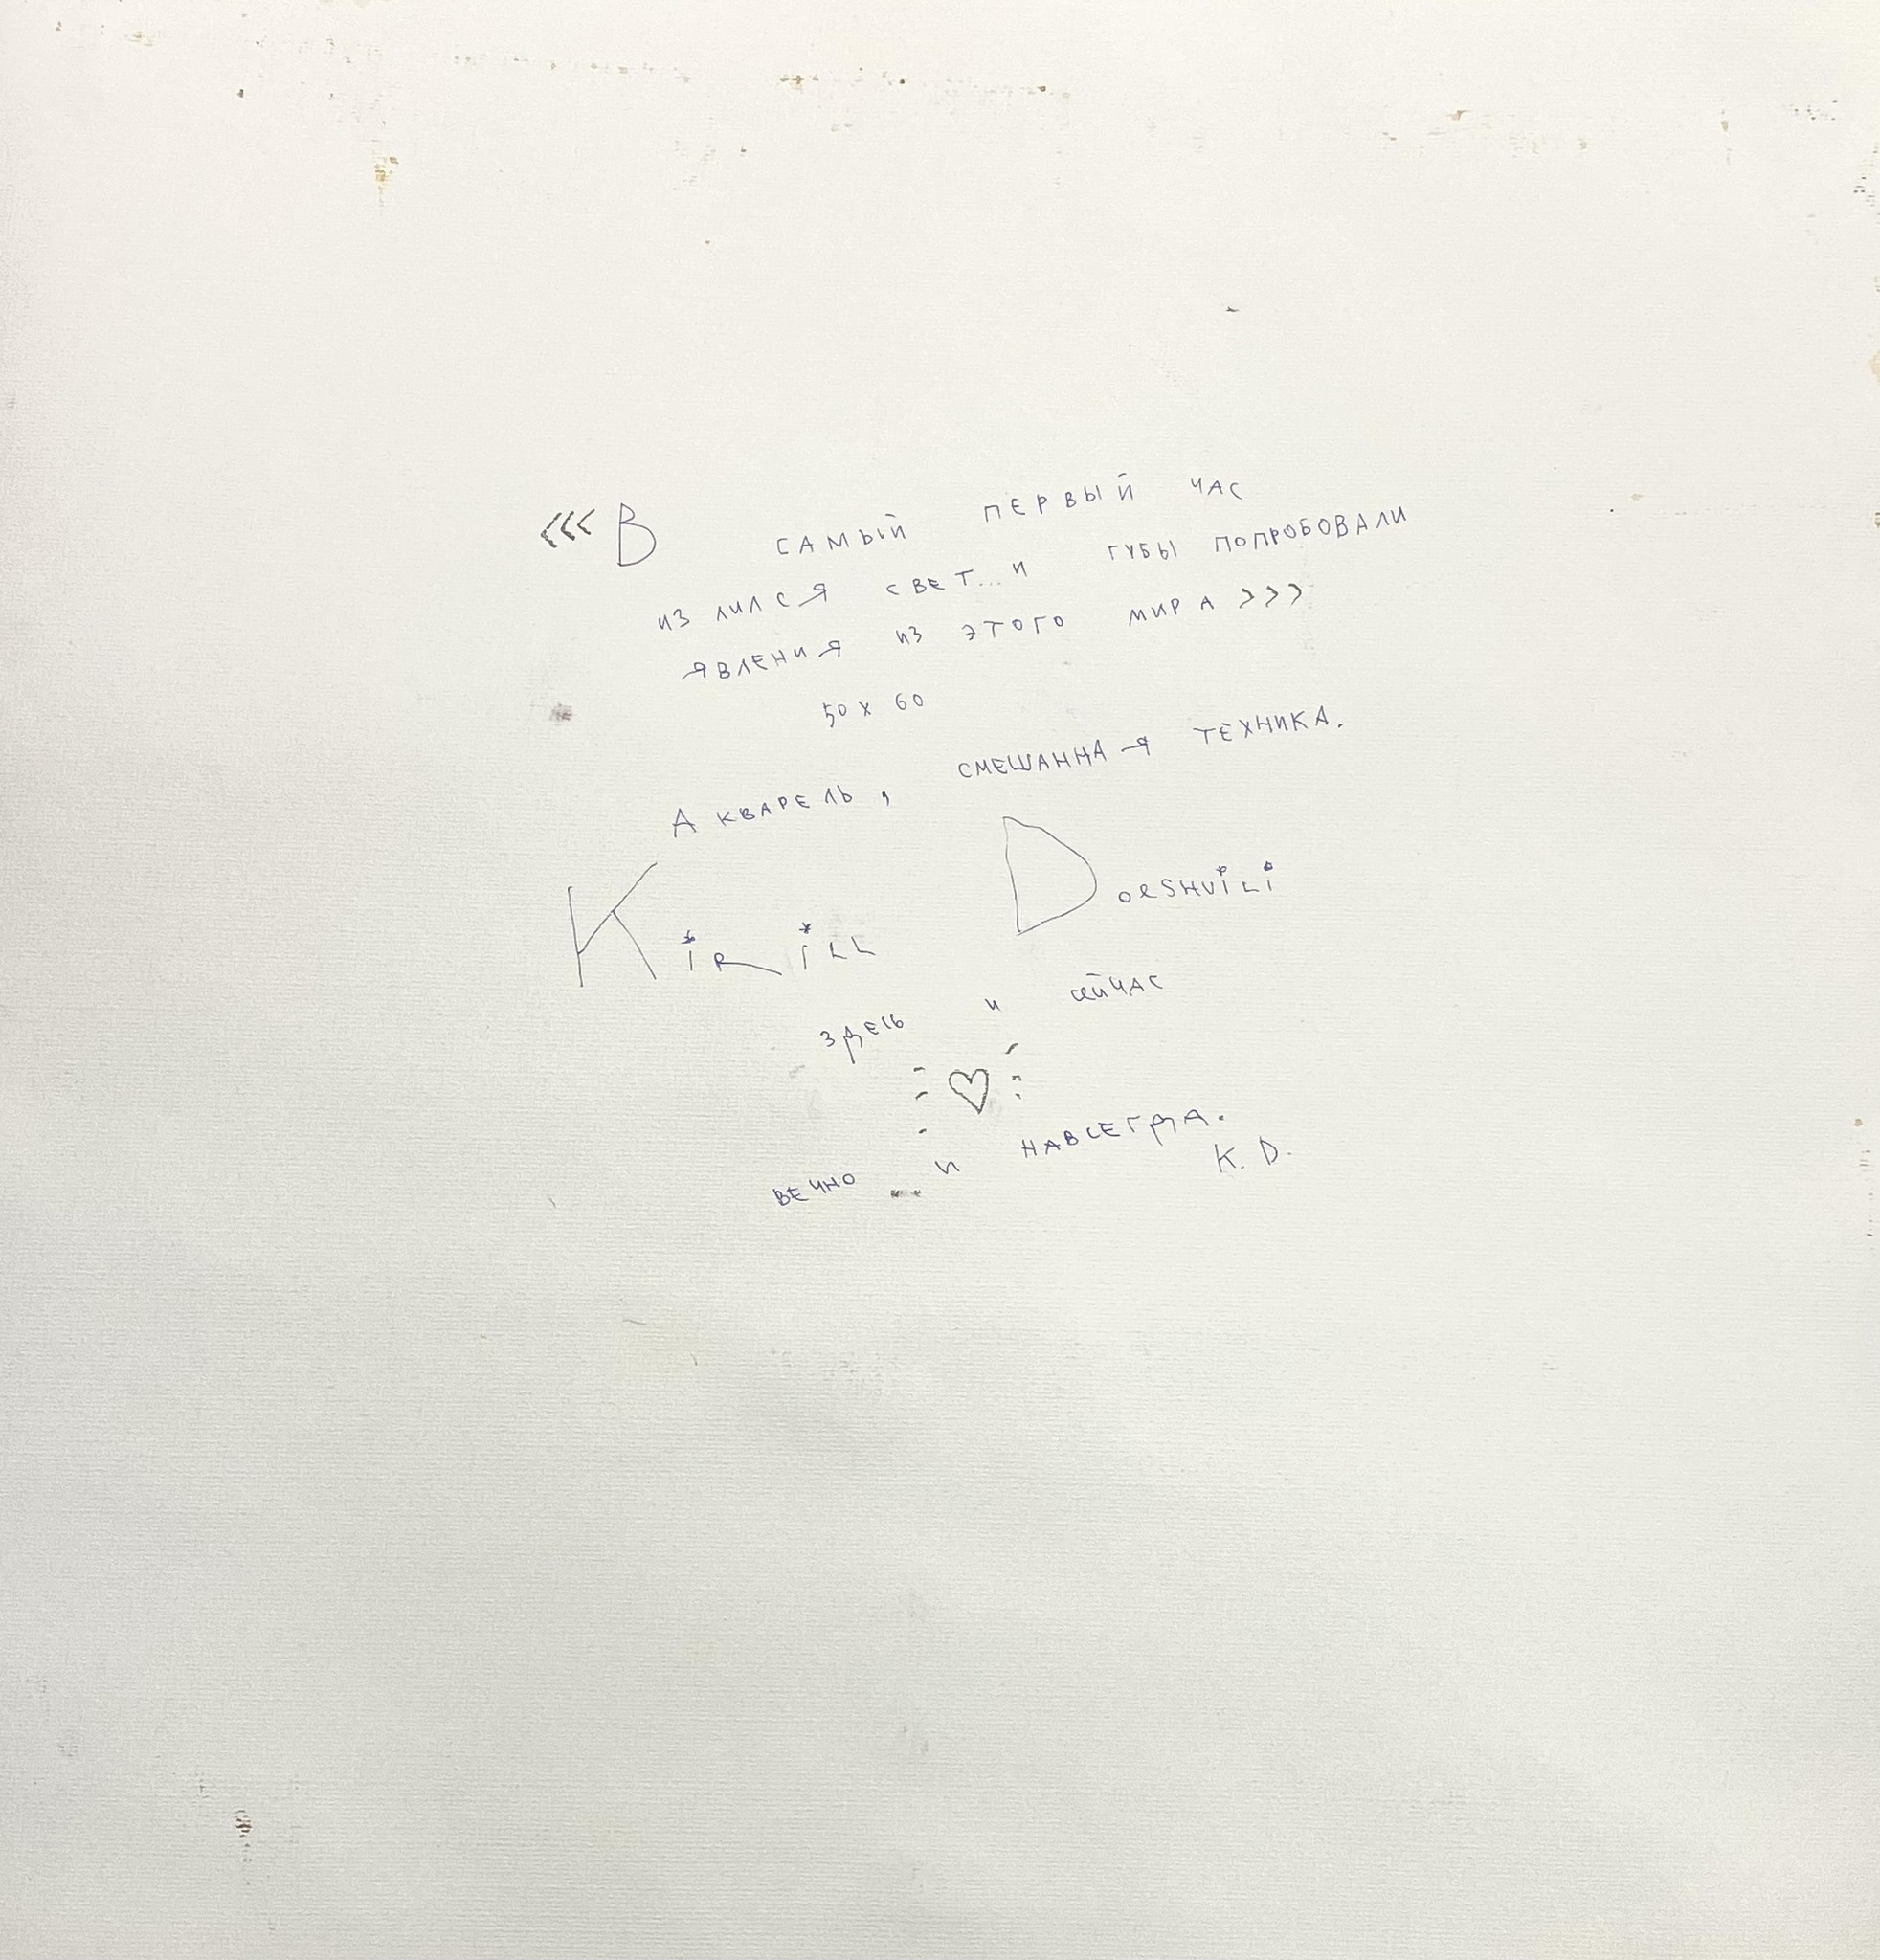 <<< В самый первый час
излился свет... и губы попробовали
явления из этого мира >>>
50 х 60
Акварель, смешанная техника.
Kirill Dorshvili
здесь и сейчас
вечно и навсегда.
K. D.